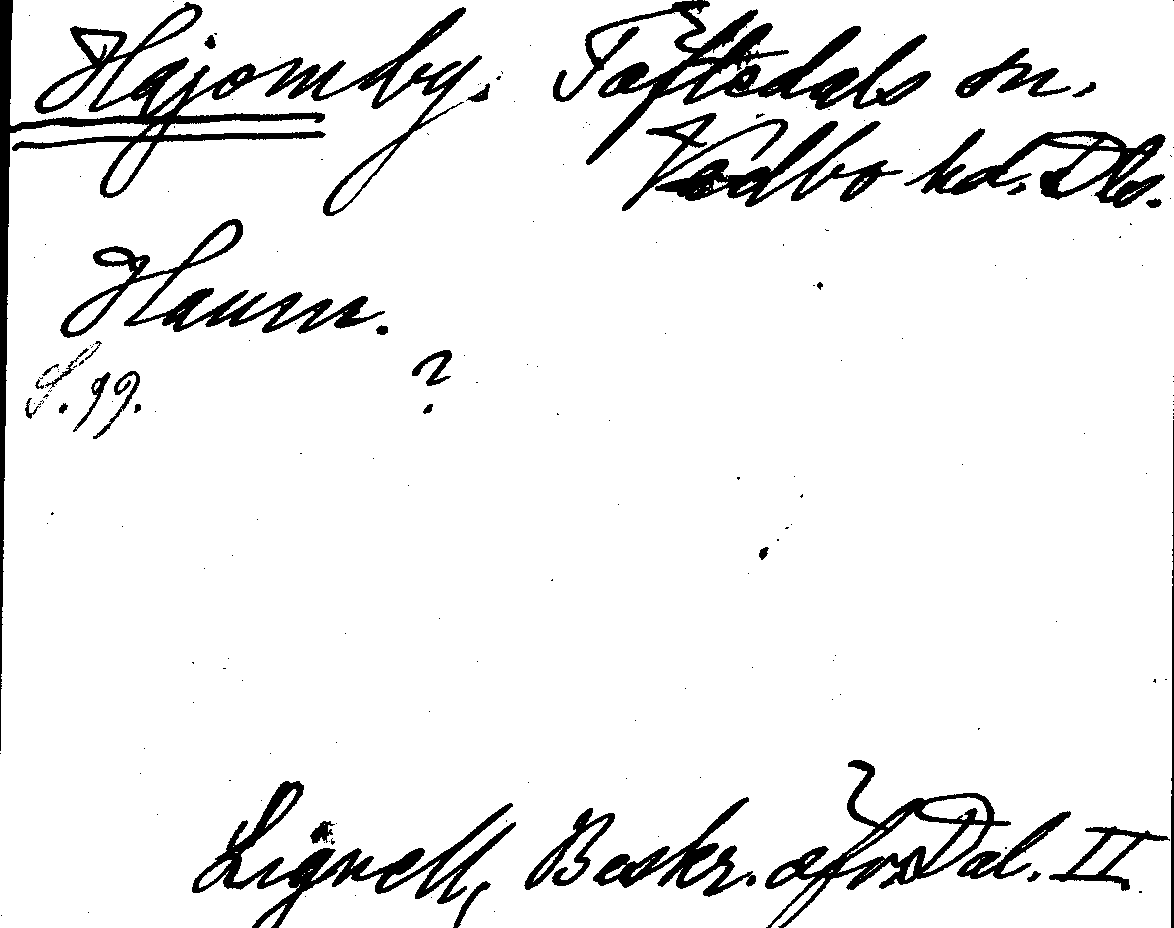 Hajom by. Töftedals sn.
Vedbo hd. Dls.
Haum.
S. 99. ?
Lignell, Beskr. öfv. Dal. II.